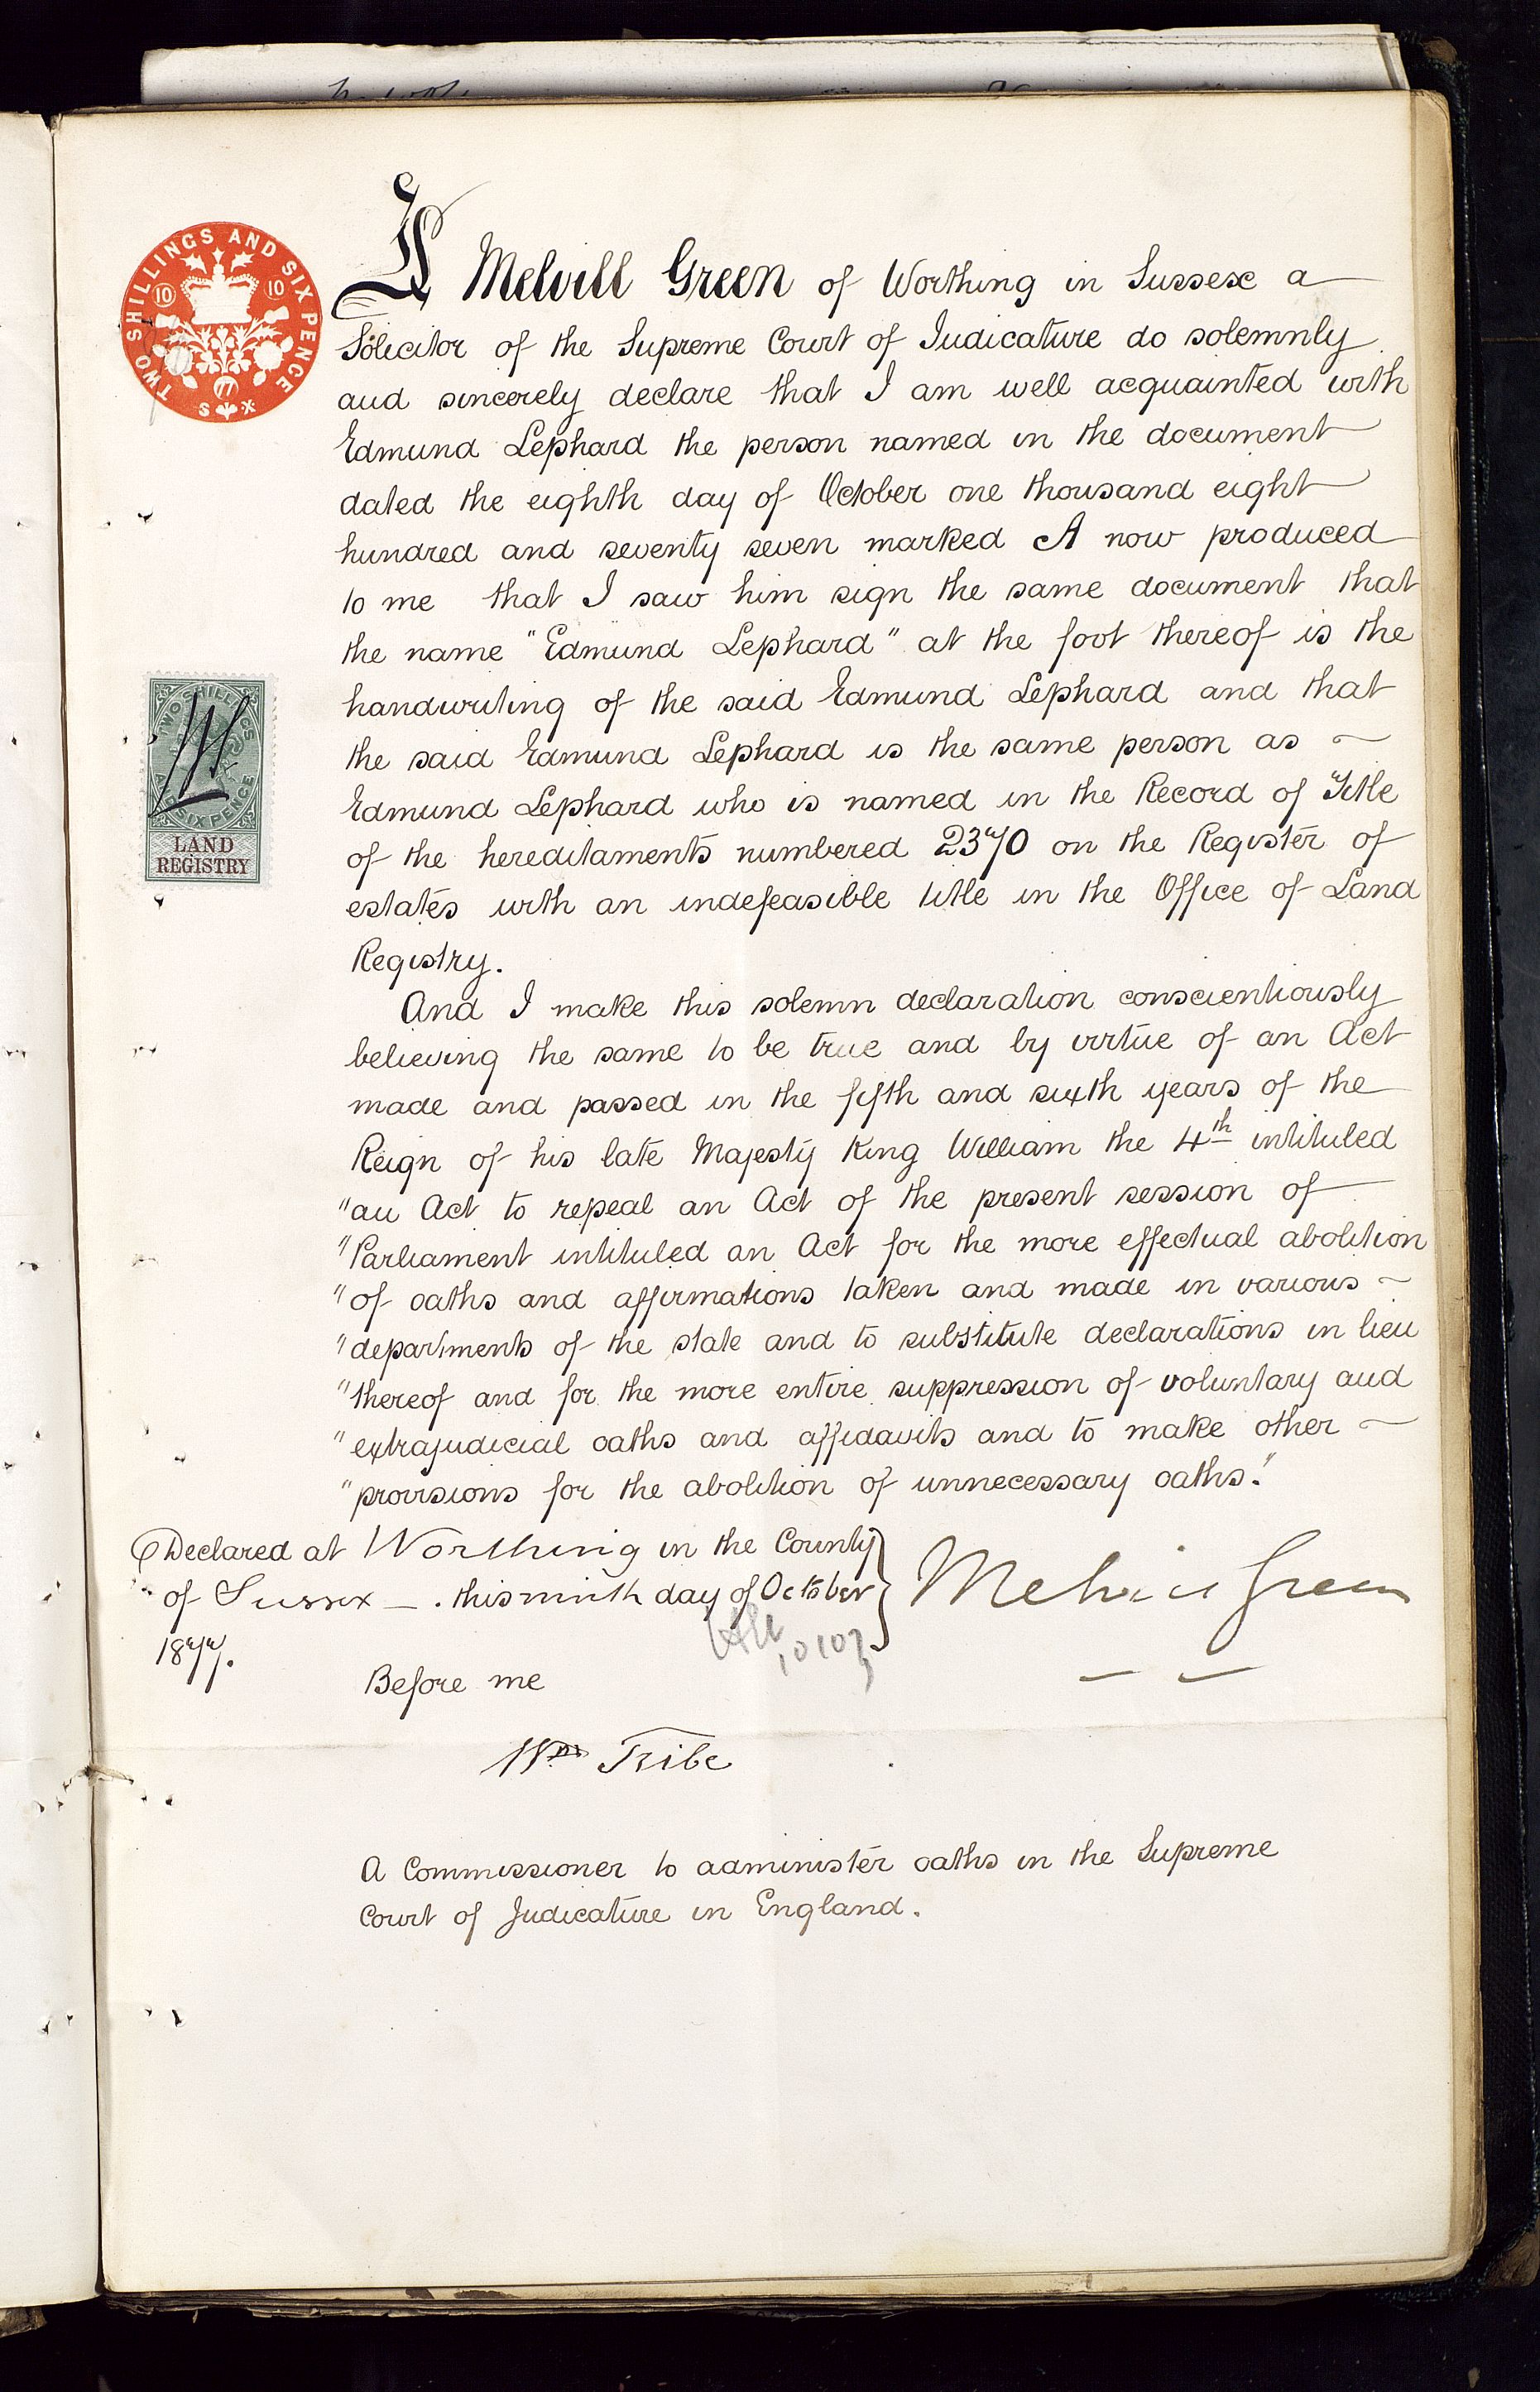 TWO SHILLINGS AND SIX PENCE
10 10
77
S X
I Melvill Green of Worthing in Sussex a
Solicitor of the Supreme Court of Judicature do solemnly
and sincerely declare that I am well acquainted with
Edmund Lephard the person named in the document
dated the eighth day of October one thousand eight
hundred and seventy seven marked A now produced
to me that I saw him sign the same document that
the name "Edmund Lephard" at the foot thereof is the
handwriting of the said Edmund Lephard and that
the said Edmund Lephard is the same person as ~
Edmund Lephard who is named in the Record of Title
of the hereditaments numbered 2370 on the Register of
estates with an indefeasible title in the Office of Land
Registry.
TWO SHILLINGS
AND SIX PENCE
LAND
REGISTRY
And I make this solemn declaration conscientiously
believing the same to be true and by virtue of an Act
made and passed in the fifth and sixth years of the
Reign of his late Majesty King William the 4th intituled
"an Act to repeal an Act of the present session of
"Parliament intituled an Act for the more effectual abolition
"of oaths and affirmations taken and made in various ~
"departments of the state and to substitute declarations in lieu
"thereof and for the more entire suppression of voluntary and
"extrajudicial oaths and affidavits and to make other ~
"provisions for the abolition of unnecessary oaths."
Declared at Worthing in the County
of Sussex — . this ninth day of October
1877.
Melvill Green
Before me
Wm Tribe
A Commissioner to administer oaths in the Supreme
Court of Judicature in England.